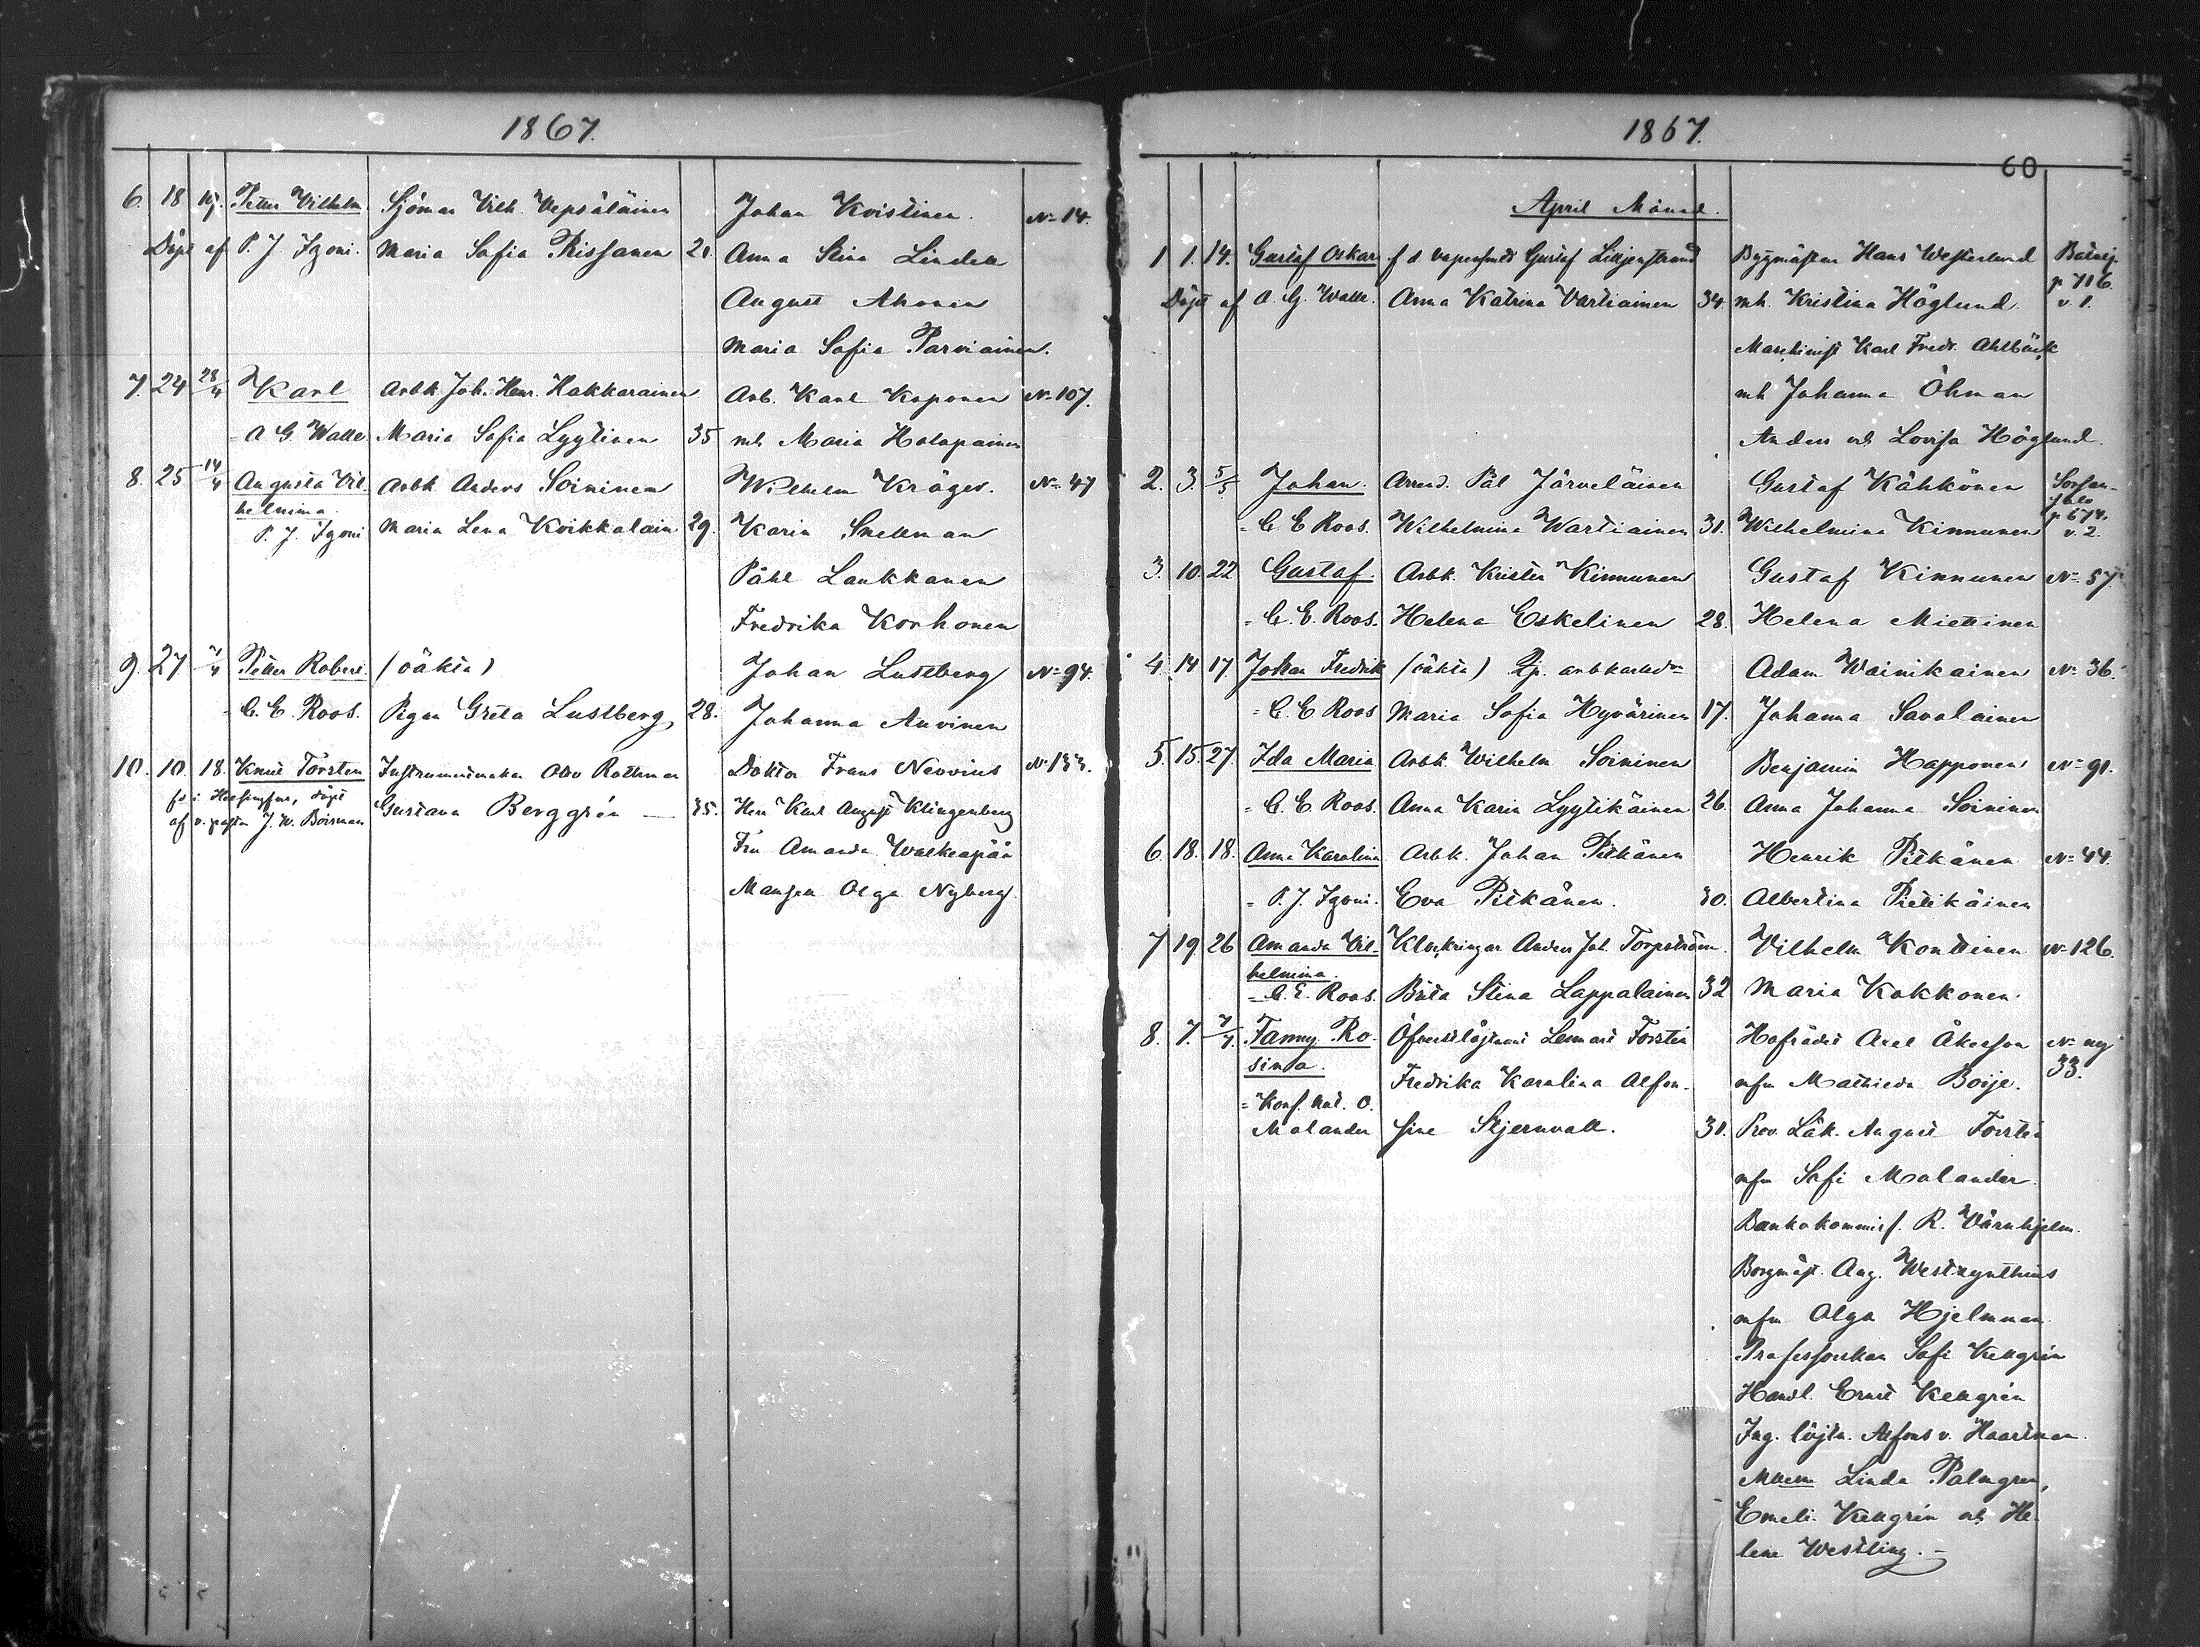 1867.
6. 18 19. Petter Vilhelm Sjöman Vilh. Vepsäläinen Johan Kvistinen. No 14.
Döpt af P. J. Igoni. Maria Sofia Rissanen 21. Anna Stina Lindell
August Ahonen
Maria Sofia Parviainen.
7. 24 28/4 Karl Arbk. Joh. Henr. Hakkarainen Arb. Karl Koponen No 107.
- A G Walle Maria Sofia Lyytinen 35 mh Maria Holopainen
8. 25 14/4 Augusta Vil- Arbk Anders Soininen Wilhelm Kröger. No 47
helmina.
P. J. Igoni Maria Lena Kvikkalain 29. Karin Snellman
Påhl Laukkanen
Fredrika Korhonen
9. 27 7/4 Petter Robert. (oäkta) Johan Lustberg No 94.
- C. E. Roos. Pigan Greta Lustberg 28. Johanna Auvinen
10. 10. 18. Knut Torsten Instrumentmakar Otto Rothman Doktor Frans Neovius No 133.
fs i Helsingfors, döpt Gustava Berggrén — 35. Herr Karl August Klingenberg
af v. pastor J. W. Boisman
Fru Amanda Walkeapää
Mamsen Olga Nyberg
1867.
60
April Månad.
1 1. 14. Gustaf Oskar f d vapensmeds Gustaf Liljenstrand Byggmästar Hans Westerlund
p 716.
v 1.
Döpt af A. G. Walle. Anna Katrina Vartiainen 34. mh. Kristina Höglund.
Maschinist Karl Fredr. Ahlbäck
mh Johanna Öhman
Anders och Lovisa Höglund.
2. 3. 5/5 Johan. Arrend. Pål Järveläinen Gustaf Kähkönen Sorsan-
jalo
p 674.
v. 2.
- C E Roos. Wilhelmina Wartiainen 31. Wilhelmina Kinnunen
3. 10. 22 Gustaf. Arbk. Krister Kinnunen Gustaf Kinnunen No 57.
- C. E. Roos. Helena Eskelinen 28. Helena Miettinen
4. 14 17. Johan Fredrik (oäkta) Adam Wainikainen No 36.
- C. E Roos Maria Sofia Hyvärinen 17. Johanna Savolainen
5. 15. 27. Ida Maria Arbk. Wilhelm Soininen Benjamin Happonen No 91.
- C. E Roos. Anna Karin Lyytikäinen 26. Anna Johanna Soininen
6. 18. 18. Anna Karolina Arbk. Johan Pitkänen Henrik Pitkänen No 44.
- P. J. Igoni. Eva Pitkänen. 30. Albertina Pietikäinen
7 19 26 Amanda Vil- Klockringar Anders Joh. Torpström. Vilhelm Konttinen No 126.
helmina.
- C. E. Roos. Brita Stina Lappalainen 32 Maria Kokkonen.
8. 7. 7/7. Fanny Ro- Öfverstlöjtnant Lennart Forstén Hofrådet Axel Åkerson No ny
33.
sina. Fredrika Karolina Alfon- mfru Mathilda Boije.
- Konf. Ant. O.
Molander sine Stjernvall. 31. Prov. Läk. August Forstén
mfru Sofi Molander.
Bankokommiss. R. Värnhjelm.
Borgmäst. Aug. Westzynthius
mfru Olga Hjelmman
Professorskan Sofi Kellgrén
Handl. Ernst Kellgrén
Ing. löjtn. Alfons v. Haartman.
Mllerna Linda Palmgren,
Emeli Kellgrén och He-
lene Westling. —